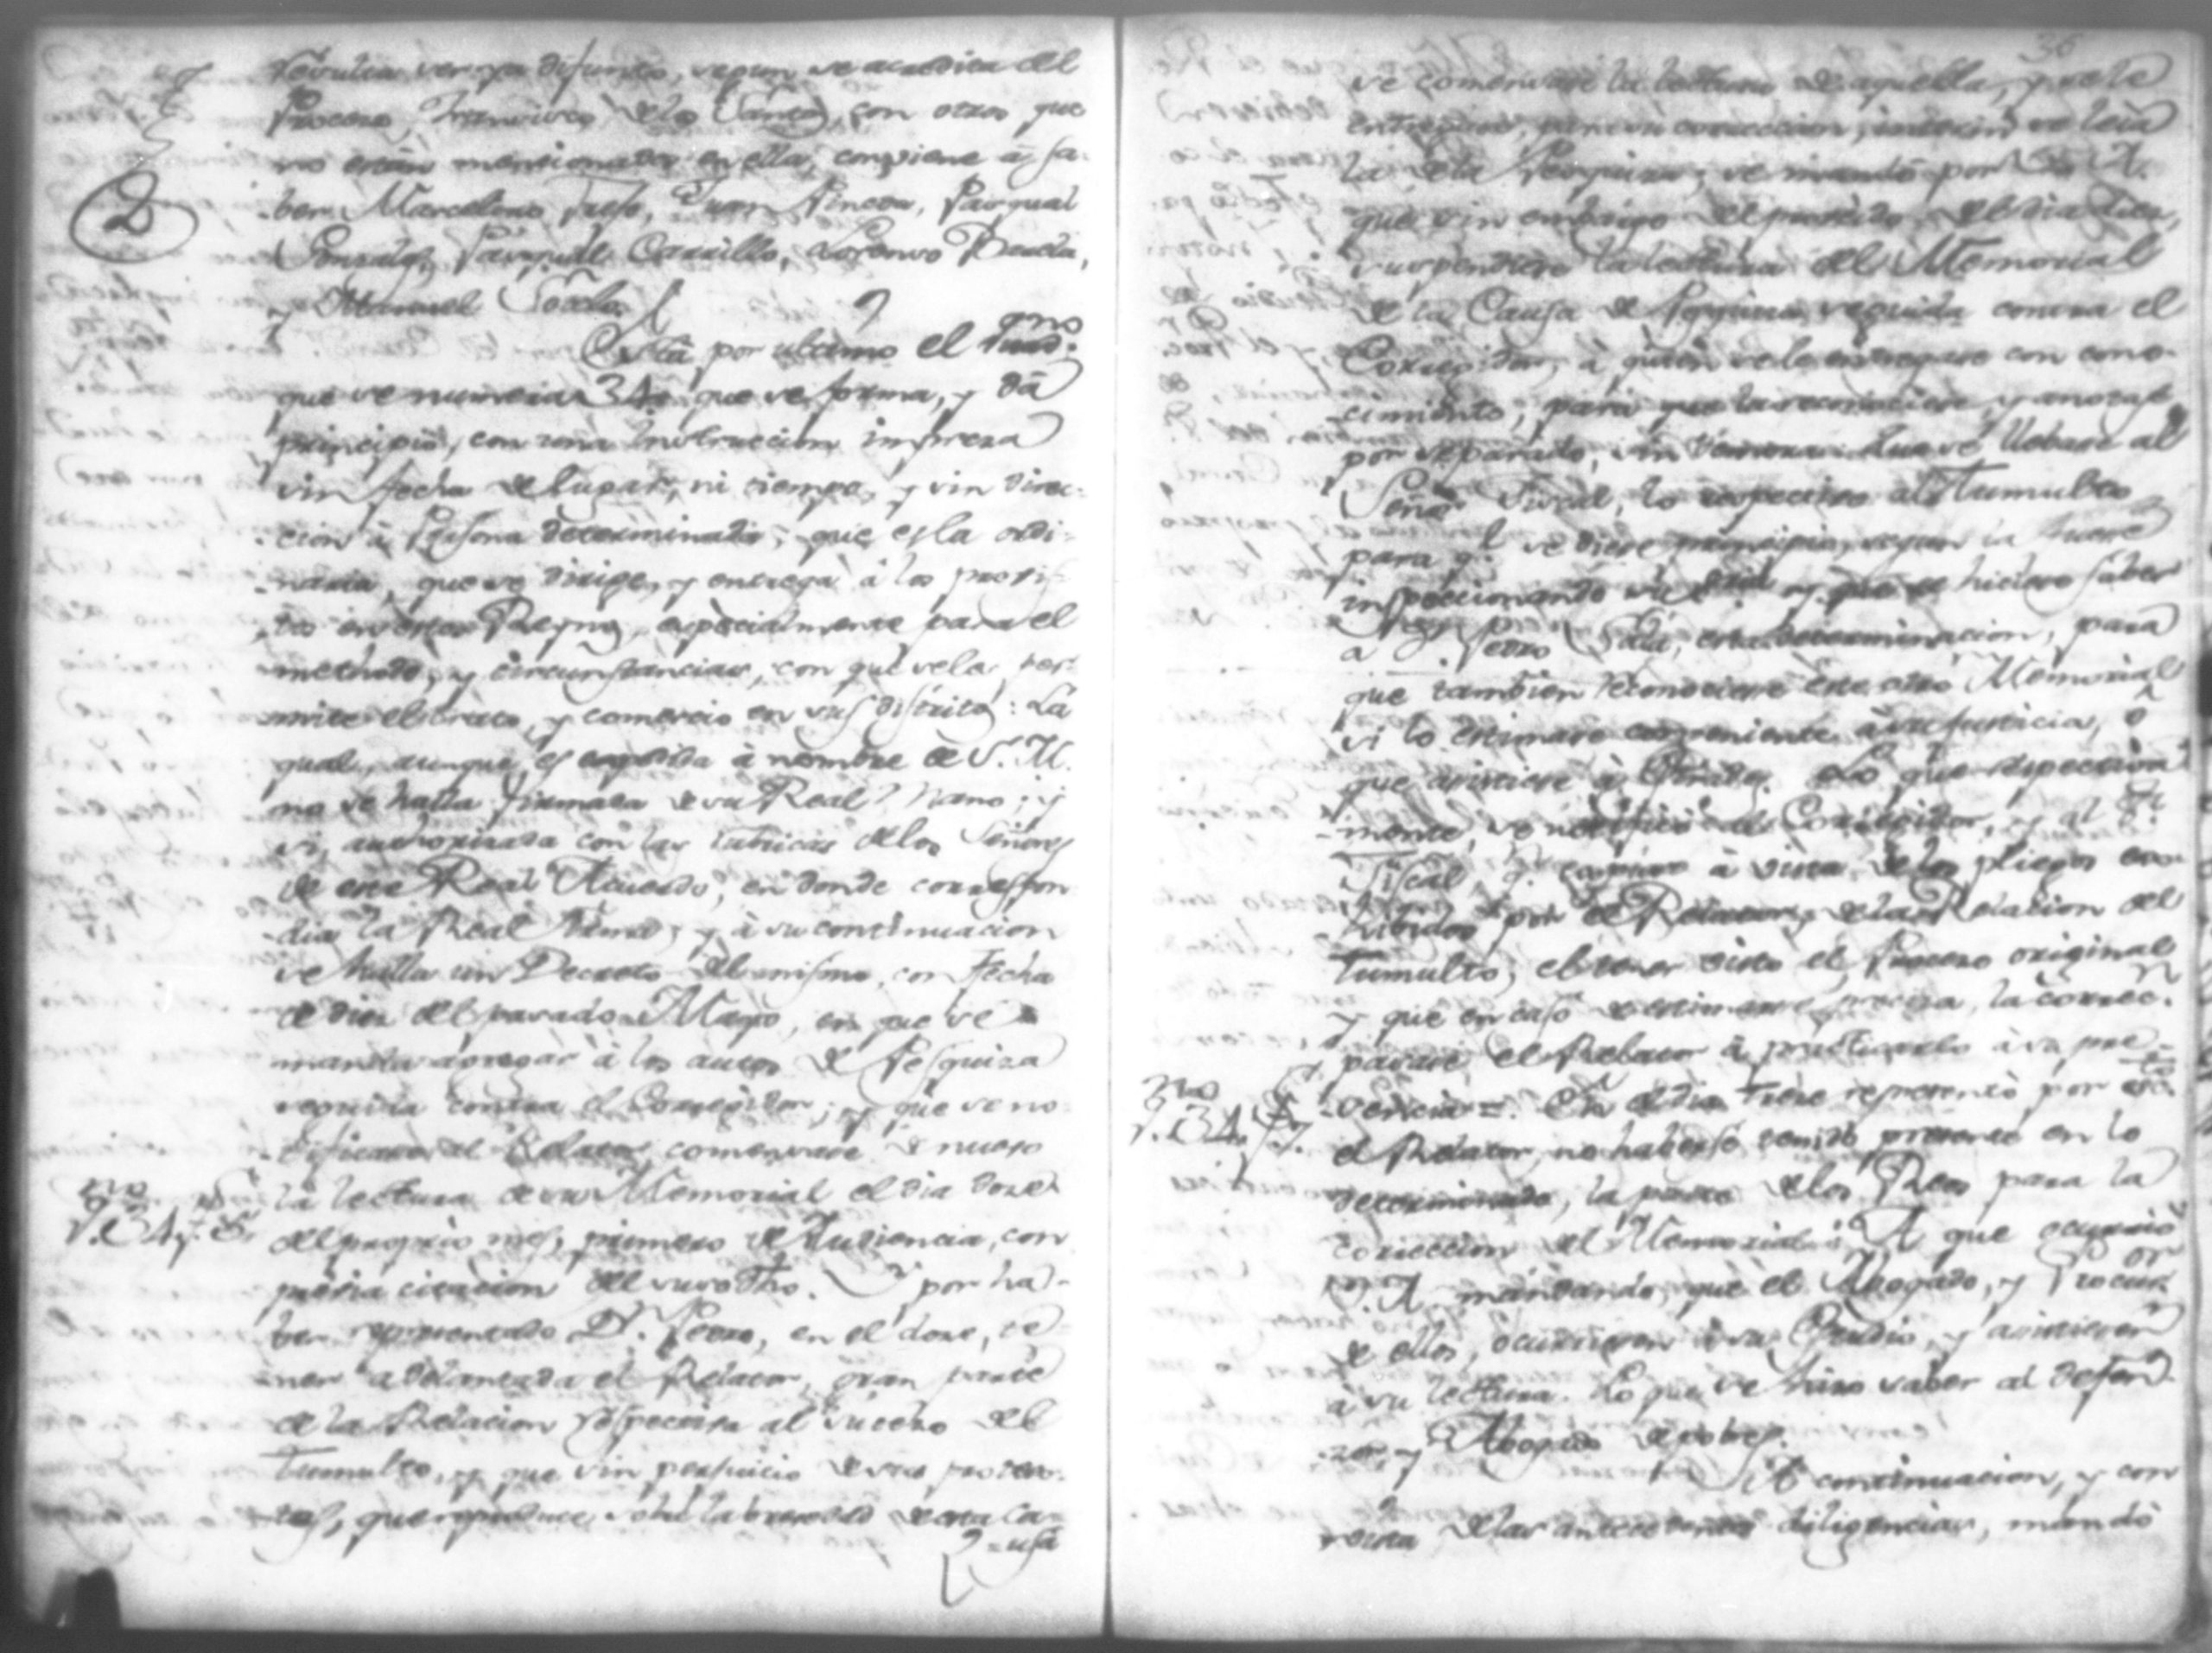 resulta ser ya difunto, segun se acredita del
Proceso, Francisco de los Santos, con otros que
no están mencionados en ella, conviene á sa-
2
ber Marcelino Trejo, Juan Rincon, Pasqual
Gonzalez, Pasqual Carrillo, Lorenzo
y Manuel
Está por ultimo el Quad.no
que se numera 34. que se forma, y dá
principio, con una Instruccion impresa
sin fecha de lugar, ni tiempo, y sin direc-
cion à Persona determinada; que es la ordi-
naria, que se dirige, y entrega à los
en estos Reynos, especialmente para el
methodo, y circunstancias, con que se la per-
mite el trato, y comercio en sus distritos: La
qual, aunque es expedida à nombre de S. M.
no se halla firmada de su Real Mano; y
si, authorizada con las rubricas de los Señores
de este Real Acuerdo, en donde correspon-
dia la Real firma; y à su continuacion
se halla un Decreto del mismo, con fecha
de diez del pasado Mayo, en que se
manda agregar à los autos de Pesquiza
seguida contra el Corregidor; y que se no-
tificase al Relator comenzase de nuevo
la lectura de su Memorial el dia doze
del proprio mes, primero de Audiencia, con
previa citacion del suso dho. Y por ha-
ver representado Dn. Pedro, en el doze, te-
ner adelantada el Relator, gran parte
de la Relacion respectiva al suceso del
Tumulto, y que sin perjuicio de sus protes-
tas, que reproduce, sobre la brevedad de esta ca-
usa
36
se comenzase la lectura de aquella, y se le
entregase, para su correccion, interin se leia
la de la Pesquiza; se mandó por S. A.
que sin embargo del proveido del dia diez,
suspendiese la lectura del Memorial
de la Causa de Pesquiza seguida contra el
Corregidor, à quien se le entregase con cono-
cimiento, para que la reconociese, y anotase
por separado, sin demora. Que se llebase al
Señor Fiscal, lo respectivo al Tumulto
para q.e se diese principio, segun la fuere
inspeccionando su y que se hiciese saber
a Dn. Pedro esta determinacion, para
que tambien reconociese este otro Memorial
si lo estimare conveniente à su Justicia, ó
que asistiese à Estrados. Lo que respectiva-
mente, se notificó al Corregidor, y al Sr.
Fiscal, q.e à vista de los pliegos
por el Relator, de la Relacion del
Tumulto, el tener visto el Proceso original
y que en caso de estimarse precisa, la correc.n
pasase el Relator à practicarlo à su pre-
sencia =. En el dia trece representó por
el Relator, no haberse tenido presente en lo
determinado, la parte de los Reos para la
correccion del Memorial: A que ocurrió
S. A. mandando, que el Abogado, y Procur.or
de ellos, ocurriesen à su Estudio, y asistiesen
à su lectura. Lo que se hizo saber al defen-
sor, y Abogado de pobres.
A continuacion, y con
vista de las antecedentes diligencias, mandó